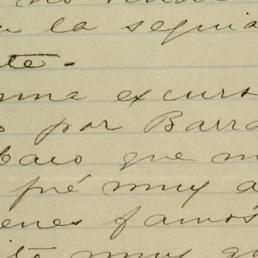 no
a la segui
te.-
una excurs
o por Barra
baio que m
fué muy a
enes famos
ite muy g